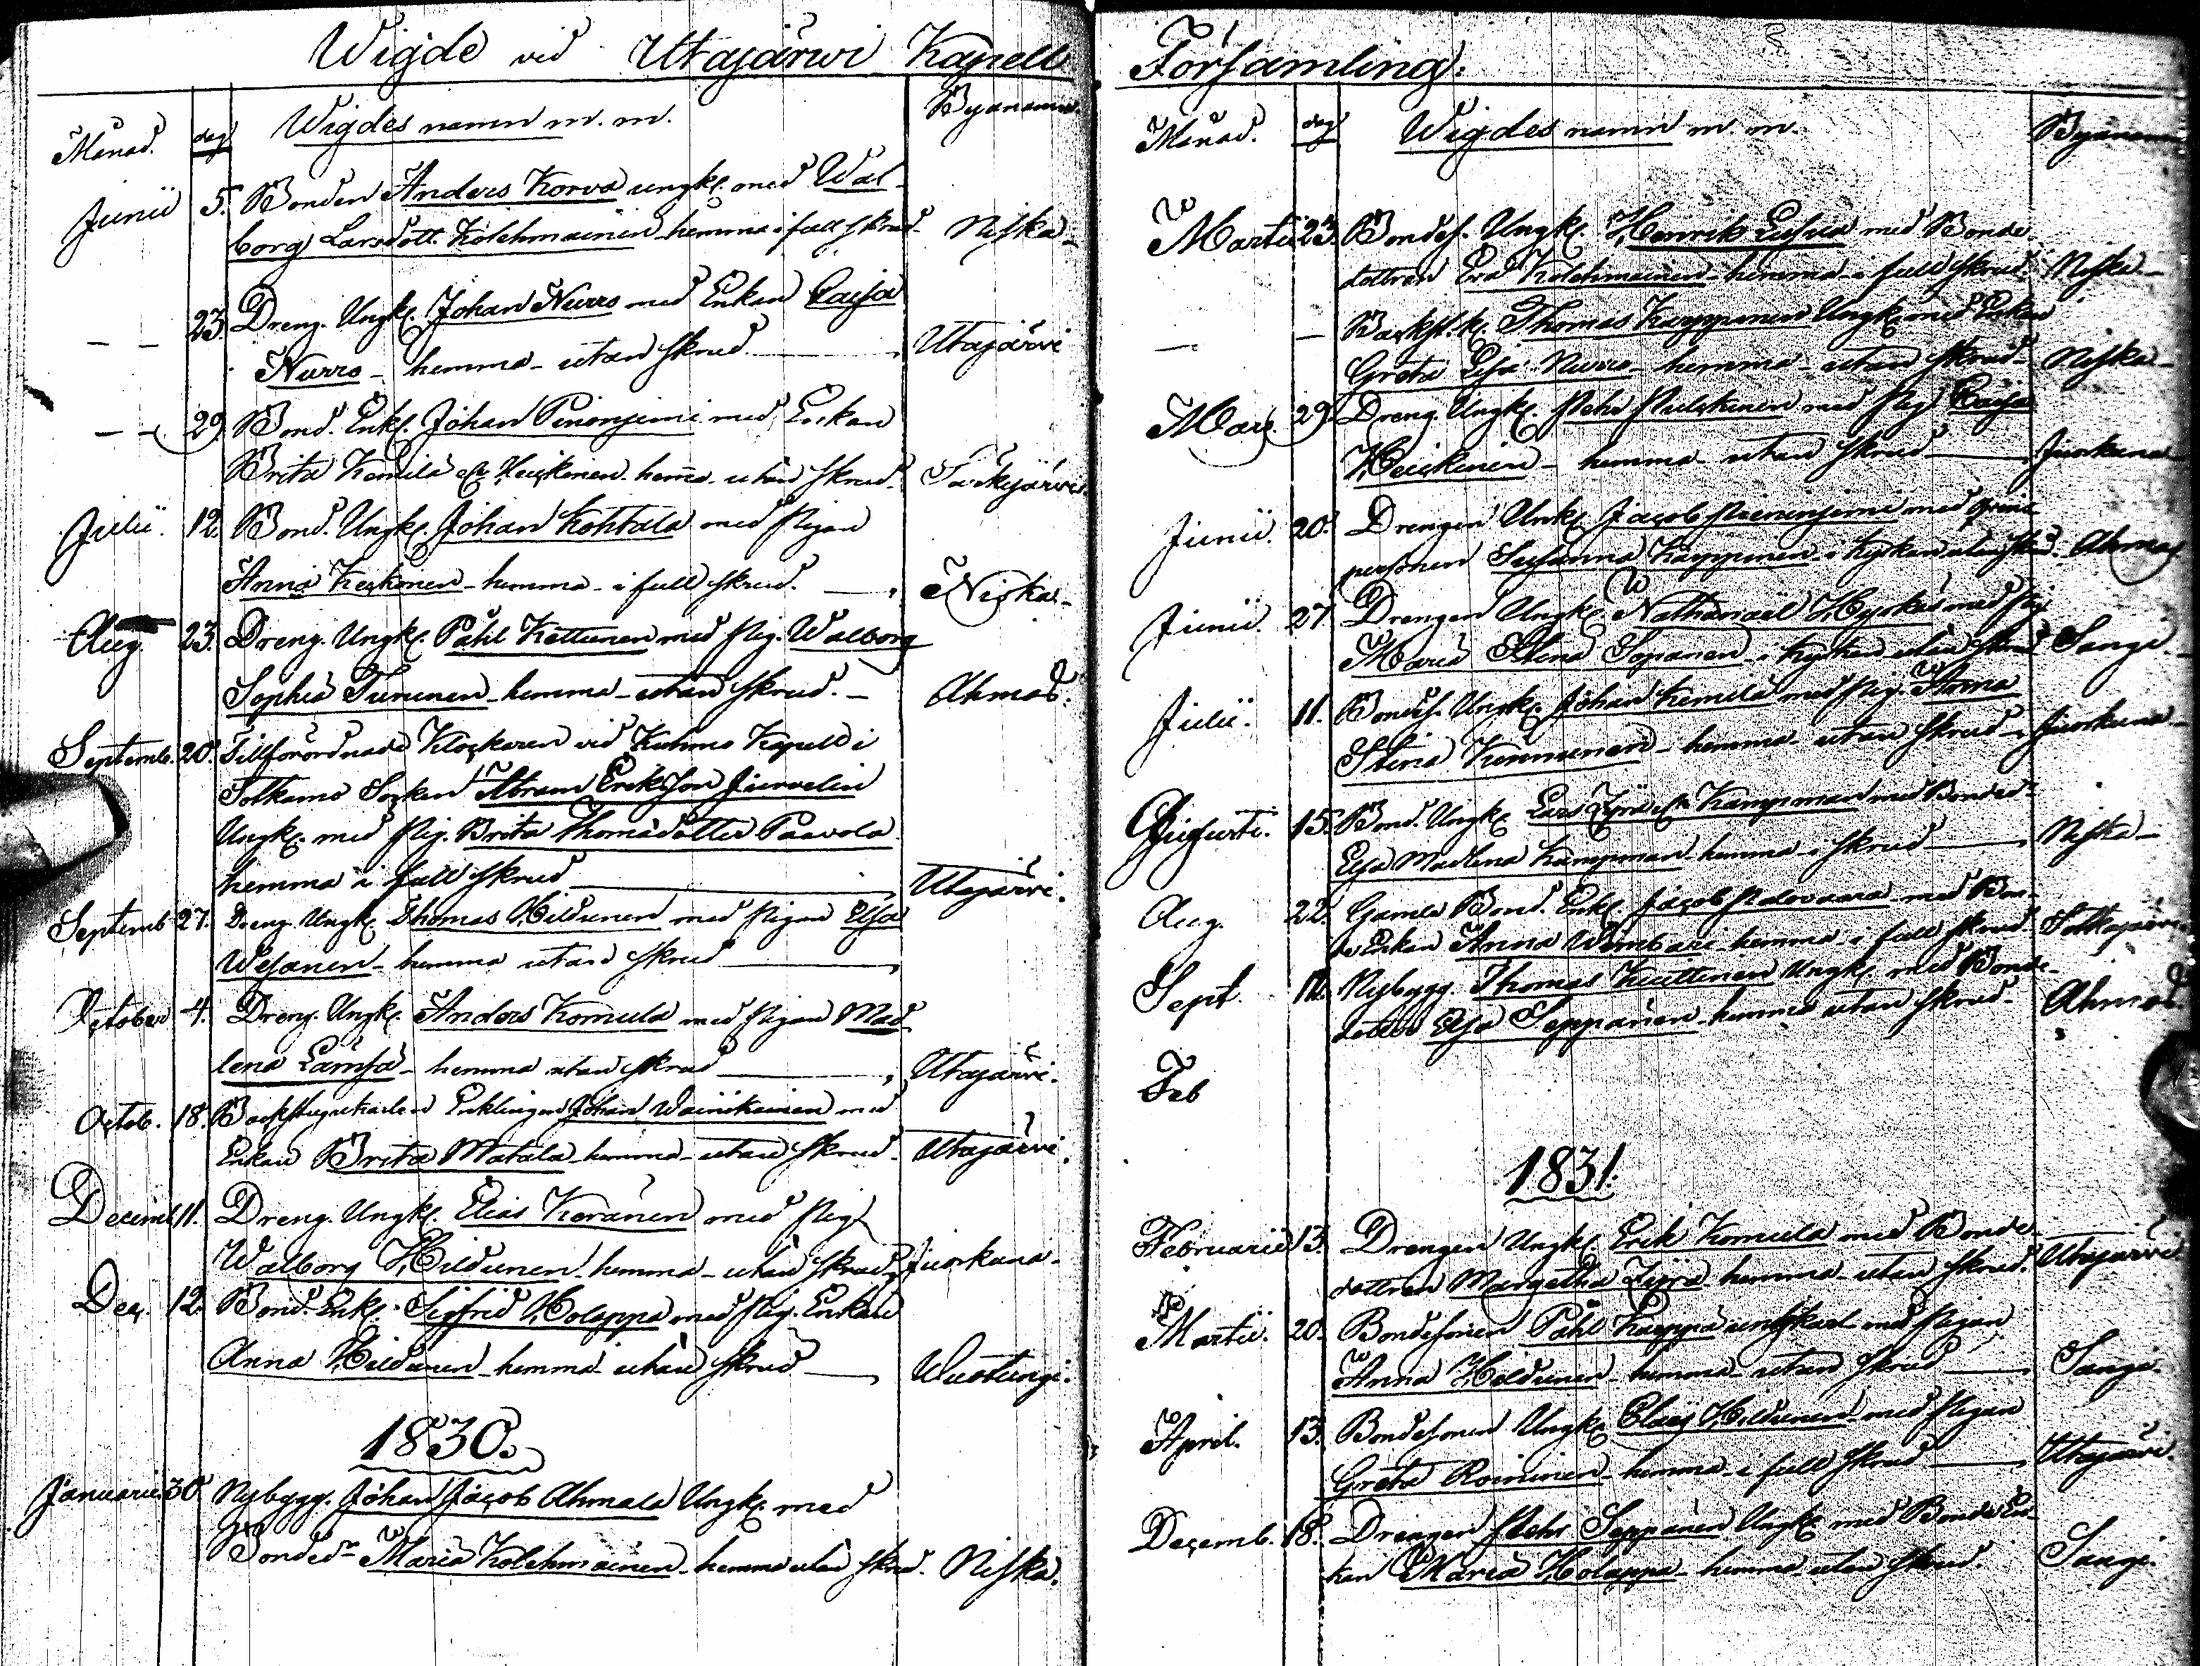 Wigde vid Utajärwi Kapell
Månad. dag Wigdes namn m. m. Byanamn
Junii 5. Bonden Anders Korva ungk. med Wal-
borg Larsdott. Kolehmainen hemma i full skrud Niska-
— — 23. Dreng. Ungk. Johan Nurro med Enkan Caisa
Nurro - hemma - utan skrud Utajärvi
— — 29. Bond. Enkl. Johan Penonjemi med Enkan
Brita Kemilä Heiskinen hemma utan skrud. Särkijärvi
Julii. 12. Bond. Ungk. Johan Kohtala med Pigan
Anna Keskonen - hemma - i full skrud. Niska-
Aug. 23. Dreng. Ungk. Påhl Kettunen med Pig. Walborg
Sophia Turunen - hemma - utan skrud. - Ahmas.
Septemb. 20. Tillförordnade Klockaren vid Kuhmo Kapell i
Sotkamo Socken Abram Eriksson Jurvelin
Ungk. med Pig. Brita Thomasdotter Paavola
hemma i full skrud Utajärvi.
Septemb 27. Dreng. Ungk. Thomas Hildunen med Pigan Elsa
Wesanen - hemma utan skrud
October 4. Dreng. Ungk. Anders Komula med Pigan Mad-
lena Lämsä - hemma utan skrud Utajärvi.
Octob. 18. Backstugukarlen Enklingen Johan Wainikainen med
Enkan Brita Matala - hemma - utan skrud. Utajärvi.
Decemb. 11. Dreng. Ungk. Elias Keränen med Pig.
Walborg Hildunen - hemma - utan skrud Juorkuna-
Dec. 12. Bond. Enkl. Sigfrid Holappa med Pig. Enkan
Anna Hildunen - hemma utan skrud
1830.
Januarii 30 Nybygg. Johan Jacob Ahmala Ungk. med
Bonded:r Maria Kolehmainen - hemma utan skrud. Niska.
Församling.
Månad. dag Wigdes namn m. m. Byanamn
Martii 23. Bondes. Ungk. Henrik med Bonde-
dottren Eva Kolehmainen - hemma - i full skrud. Niska-
— — Thomas Karppinen Ungk. med Enkan
Greta Lisa Nurro - hemma - utan skrud - Niska-
29. Dreng. Ungk. Pehr Pulckinen med Pig. Caisa
Heiskinen - hemma - utan skrud Juorkuna
Junii. 20. Drengen Ungk. Jacob med qvins
personen Susanna Karppinen - i kyrkan utan skrud. Ahmas
Junii. 27. Drengen Ungk. Nathanael Hyrkäs med Pig.
Maria Stina Sopanen - i kyrkan utan skrud Sangi-
Julii. 11. Bondes. Ungk. Johan Kemilä med Pig. Anna
Stina Kinnunen - hemma utan skrud - Juorkuna-
Augusti. 15. Bond. Ungk. Lars Kampman med Bonded:r
Elsa Madlena Kampman - hemma - i skrud Niska-
Aug. 22. Gamla Bond. Enkl. Jacob Palovaara med Bon-
de Enkan Anna - hemma - i full skrud.
Sept. Nybygg. Thomas Kuittinen Ungk. med Bonde-
dotter Elsa Seppänen - hemma utan skrud. Ahmas
Feb
1831.
Februarii 13. Drengen Ungk. Erik Komula med Bonde-
dottren Margetha Zyrä hemma - utan skrud. Utajärvi
Martii. 20. Bondesonen Påhl ungkarl med Pigan
Anna Hildunen - hemma - utan skrud Sangi.
April. 13. Bondesonen Ungk. Claes Hildunen med Pigan
Greta Roininen - hemma - i full skrud Utajärvi.
Decemb. 18. Drengen Pehr Seppänen Ungk. med Bonde En-
kan Maria Holappa - hemma utan skrud. Sangi.